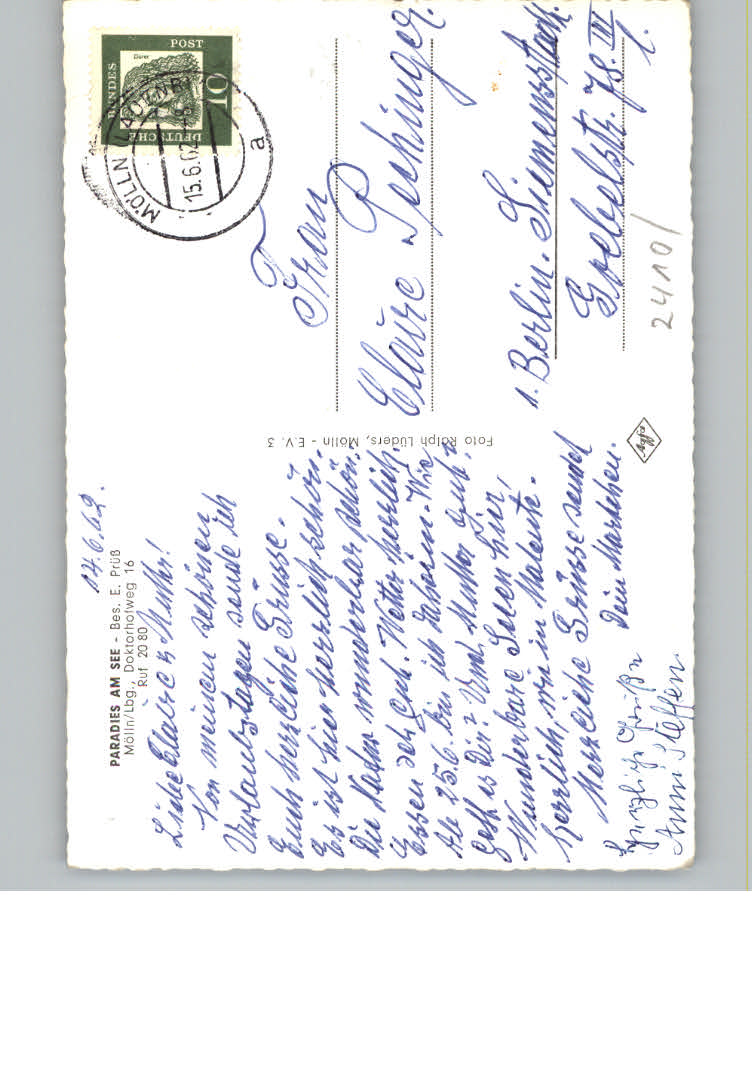 PARADIES AM SEE - Bes. E. Prüß
Mölln/Lbg., Doktorhofweg 16
Ruf 20 80
14.6.62.
Liebe Claire u. Mutter!
Von meinen schönen
Urlaubstagen sende ich
Euch herzliche Grüsse.
Es ist hier herrlich schön.
Die Natur wunderbar schön.
Essen sehr gut. Wetter herrlich.
Ab 25.6. bin ich daheim. Wie
geht es Dir? Und Mutter gut?
Wunderbare Seeen hier,
herrlich, wie in Malente.
Herzliche Grüsse sendet
Dein Martchen.
Herzliche Grüße
Anni Steffen.
Foto Ralph Lüders, Mölln - E.V. 3
Agfa
DEUTSCHE
BUNDES
POST
10
Dürer
MÖLLN (LAUENB)
15.6.62 -8
a
Frau
Claire Pechinger.
1. Berlin-Siemensstadt.
Goebelstr. 78. III
l.
2410/